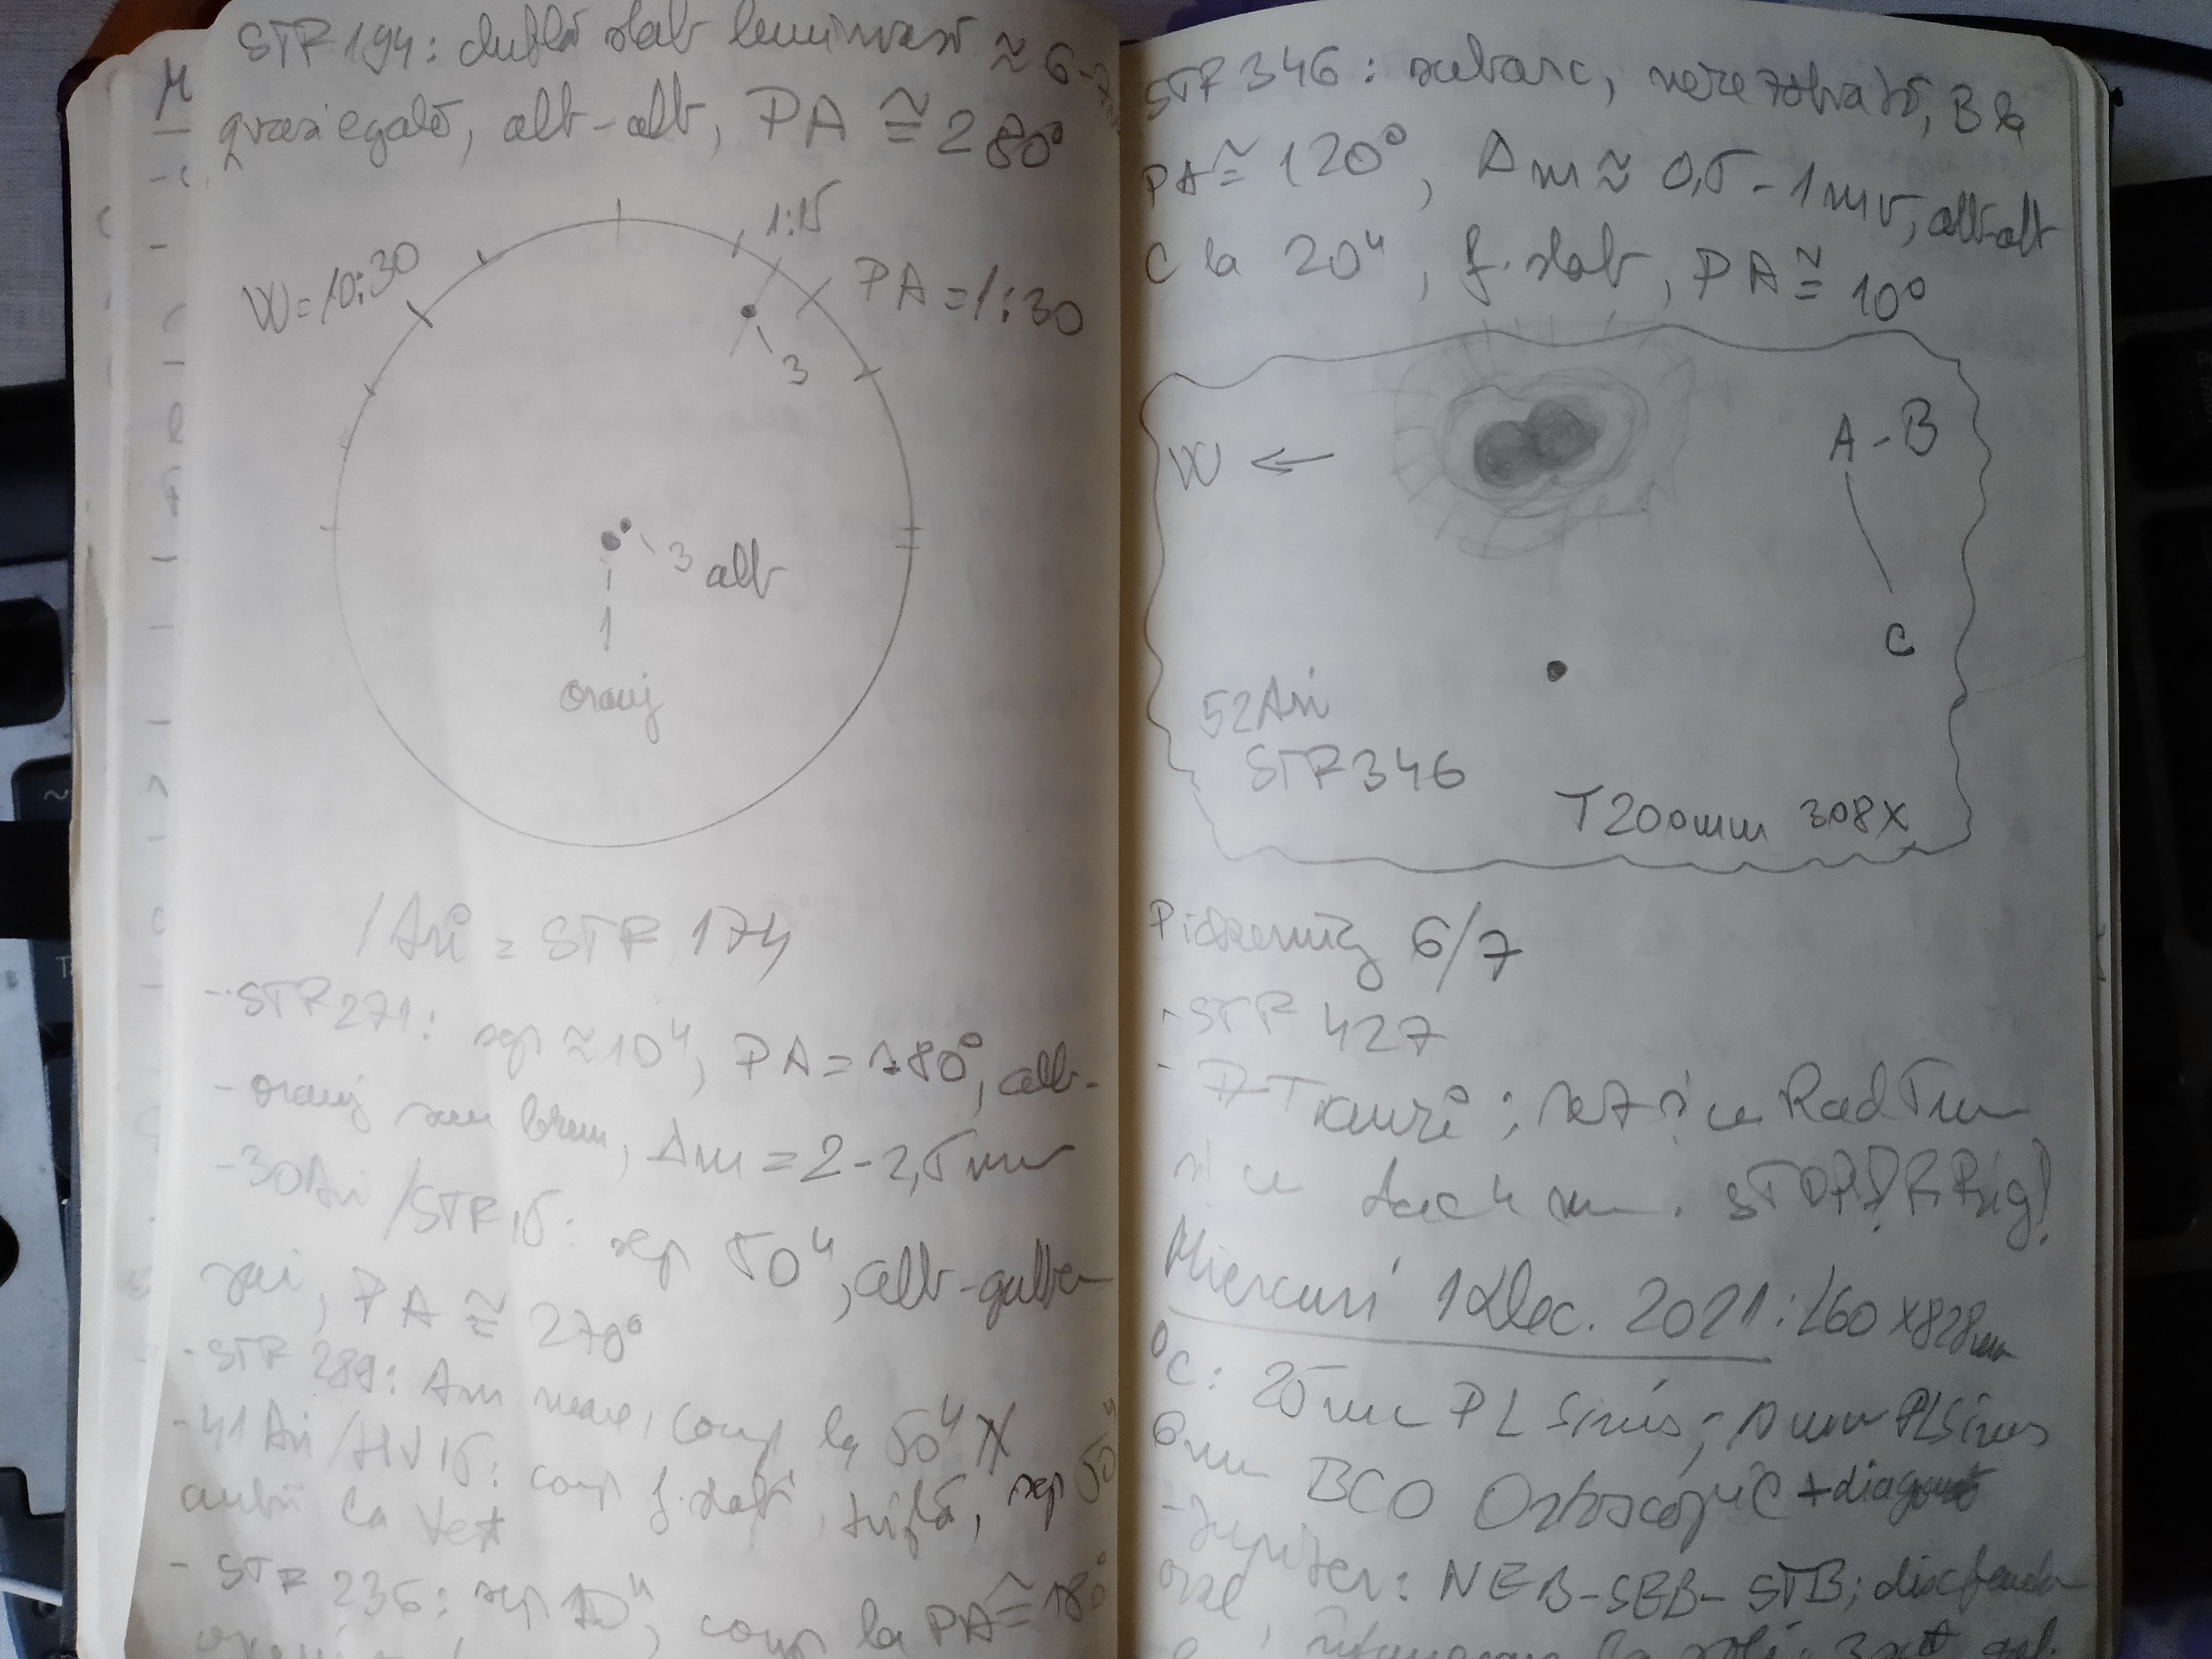 STF 194: dublă slab luminoasă ≈ 6-7"
qvasiegală, alb-alb, PA ≅ 280°
1:15
W=10:30
PA=1:30
3
3 alb
1
oranj
1 Ari = STF 174
-STF 271: sep ≈ 10", PA = 180°, alb-
-oranj sau brun, Δm = 2-2,5mv
-30Ari/STF, 15: sep 50", alb-galben
PA ≅ 270°
-STF 289: Δm mare, comp la 50"
-41Ari/HV 15: comp f. slabi, triplă, sep 50"
ambii la Vest
- STF 236: sep 10", comp la PA ≅ 180°
STF 346: subarc, nerezolvată, B la
PA ≅ 120°, Δm ≈ 0,5-1mv, alb-alb
C la 20", f. slab, PA ≅ 10°
W ←
A-B
C
52Ari
STF346
T200mm 308X
Pickering 6/7
-STF 427
-7 Tauri;
și cu STOP! Frig!
Miercuri 1 Dec. 2021: L60X828mm
Oc: 25mm PL Sirius; 10mm PLSirius
6mm BCO Ortoscopic + diagonal
-Jupiter: NEB-SEB-STB;